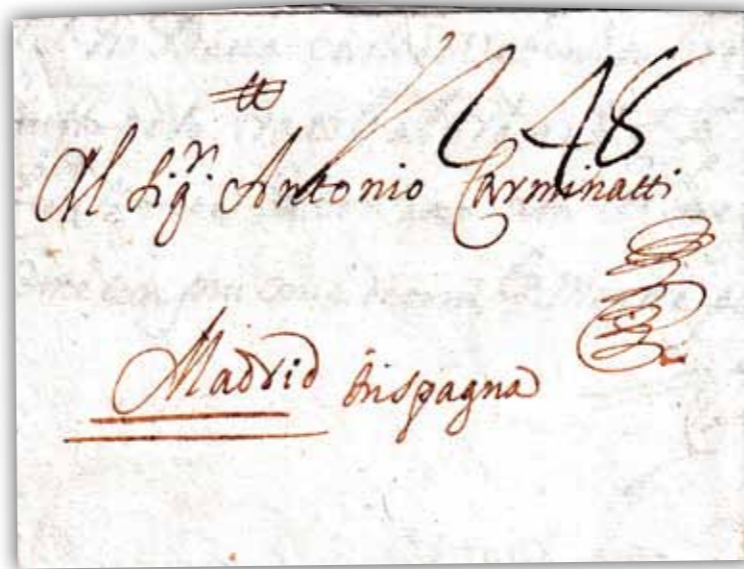 48
Al Sig.r Antonio Carminatti
Madrid Inspagna